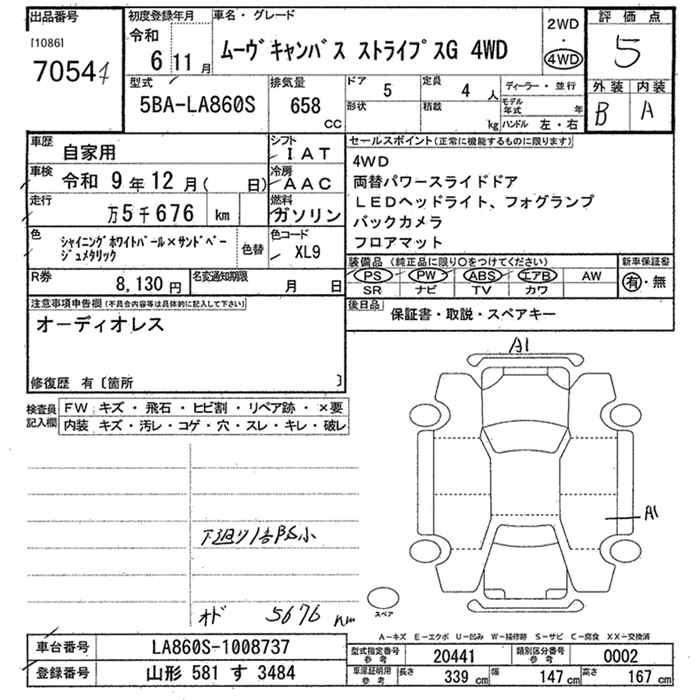 出品番号
[1086]
7054
初度登録年月
令和
6 11 月
車名・グレード
ムーヴキャンバス ストライプスG 4WD
2WD
・
4WD
評価点
5
外装 内装
B A
型式
5BA-LA860S
排気量
658
CC
ドア
5
定員
4 人
形状
積載
kg
ディーラー・並行
モデル年式 年
ハンドル 左・右
車歴
自家用
シフト
IAT
車検
令和 9 年 12 月( 日)
冷房
AAC
走行
万5千676 km
燃料
ガソリン
色
シャイニングホワイトパール×サンドベー
ジュメタリック
色替
色コード
XL9
R券
8,130 円
名変通知期限
月 日
セールスポイント(正常に機能するものに限ります)
4WD
両替パワースライドドア
LEDヘッドライト、フォグランプ
バックカメラ
フロアマット
装備品 (純正品に限り〇をつけてください)
PS PW ABS エアB AW
SR ナビ TV カワ
新車保証書
有・無
後日品
保証書・取説・スペアキー
注意事項申告欄(不具合内容等は具体的に記入して下さい)
オーディオレス
修復歴 有〔箇所 〕
検査員
記入欄
FW キズ・飛石・ヒビ割・リペア跡・×要
内装 キズ・汚レ・コゲ・穴・スレ・キレ・破レ
A1
A1
下廻り
小
オド 5676 km
スペア
A−キズ E−エクボ U−凹み W−補修跡 S−サビ C−腐食 XX−交換済
車台番号
LA860S-1008737
登録番号
山形 581 す 3484
型式指定番号
参考
20441
類別区分番号
参考
0002
車庫証明用
参考
長さ 339 cm 幅 147 cm 高さ 167 cm